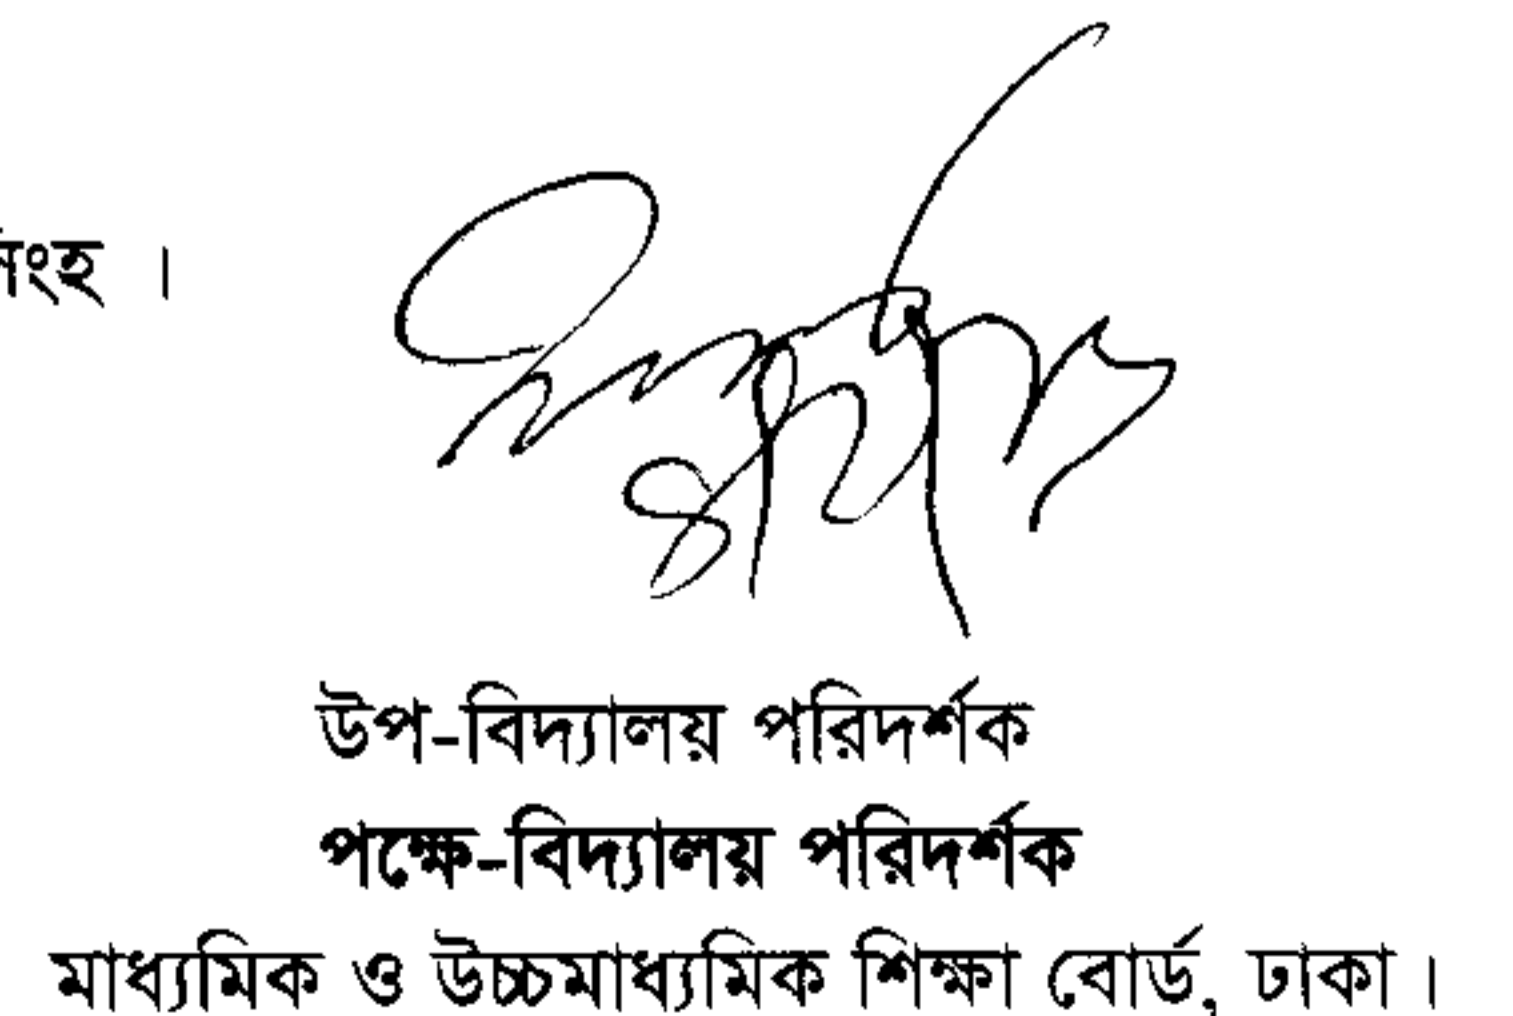 উপ-বিদ্যালয় পরিদর্শক
পক্ষে-বিদ্যালয় পরিদর্শক
মাধ্যমিক ও উচ্চমাধ্যমিক শিক্ষা বোর্ড, ঢাকা।